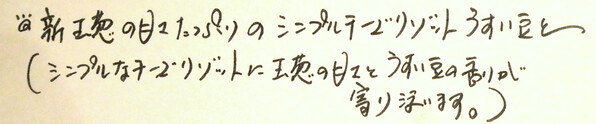 新玉葱の甘さたっぷりのシンプルチーズリゾット うすい豆と
(シンプルなチーズリゾットに玉葱の甘さとうすい豆の香りが
寄り添います。)